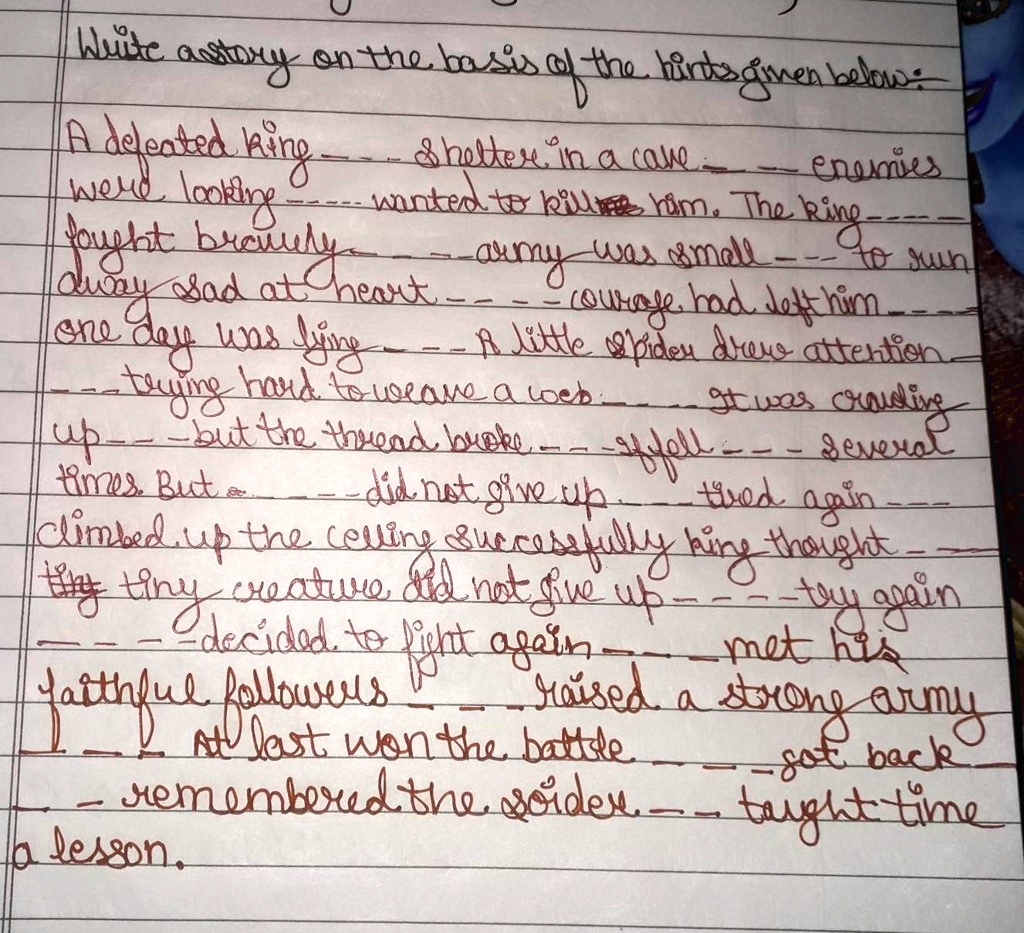 Write a story on the basis of the hints given below:-
A defeated king ---- shelter in a cave --- enemies
were looking ----- wanted to kill him. The king ----
fought bravely ---- army was small --- to run
away sad at heart ---- courage had left him ----
one day was lying ---- A little spider drew attention -
--- trying hard to weave a web ---- It was crawling
up --- but the thread broke --- fell --- several
times. But ---- did not give up --- tired again ---
climbed up the ceiling successfully king thought --
tiny creature did not give up ---- try again
---- decided to fight again --- met his
faithful followers --- raised a strong army
---- At last won the battle --- got back -
-- remembered the soider -- taught time
a lesson.